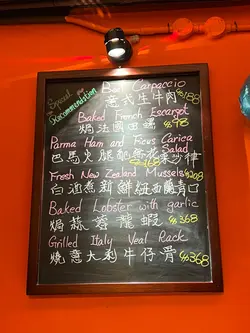 Special
Recommendation
Beef Carpaccio
意式生牛肉 $188
Baked French Escargot
焗法國田螺 $98
Parma Ham and Ficus Carica
Salad
巴馬火腿 沙律 $268
Fresh New Zealand Mussels
白酒煮新鮮紐西蘭青口 $208
Baked Lobster with garlic
焗蒜蓉龍蝦 $368
Grilled Italy Veal Rack
燒意大利牛仔骨 $368